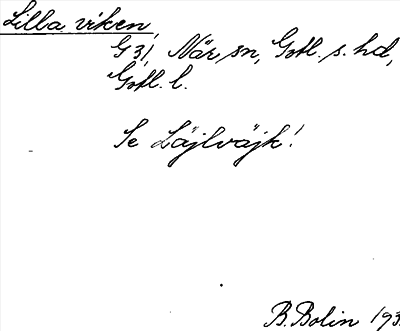 Lilla viken,
G 31, När sn, Gotl. s. hd,
Gotl. l.
Se Läjlväjk!
B. Bolin 193